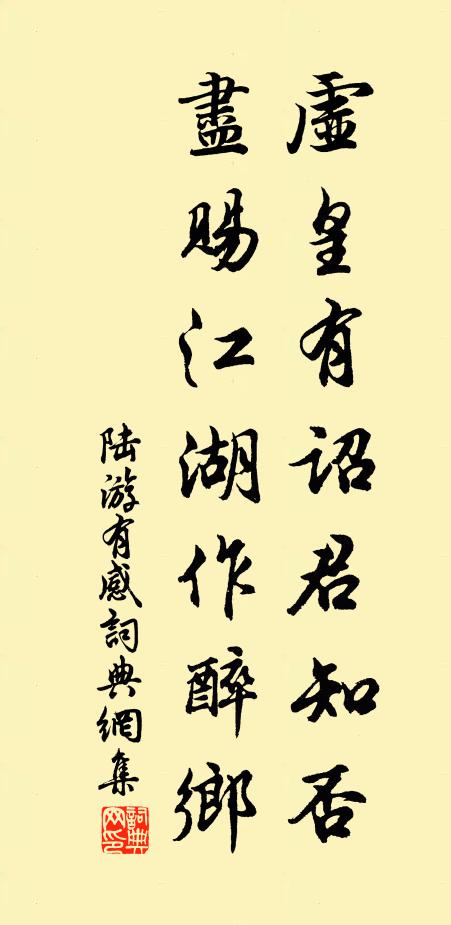 虛皇有詔君知否
盡賜江湖作醉鄉
陸游有感詞典網集
詞典網印